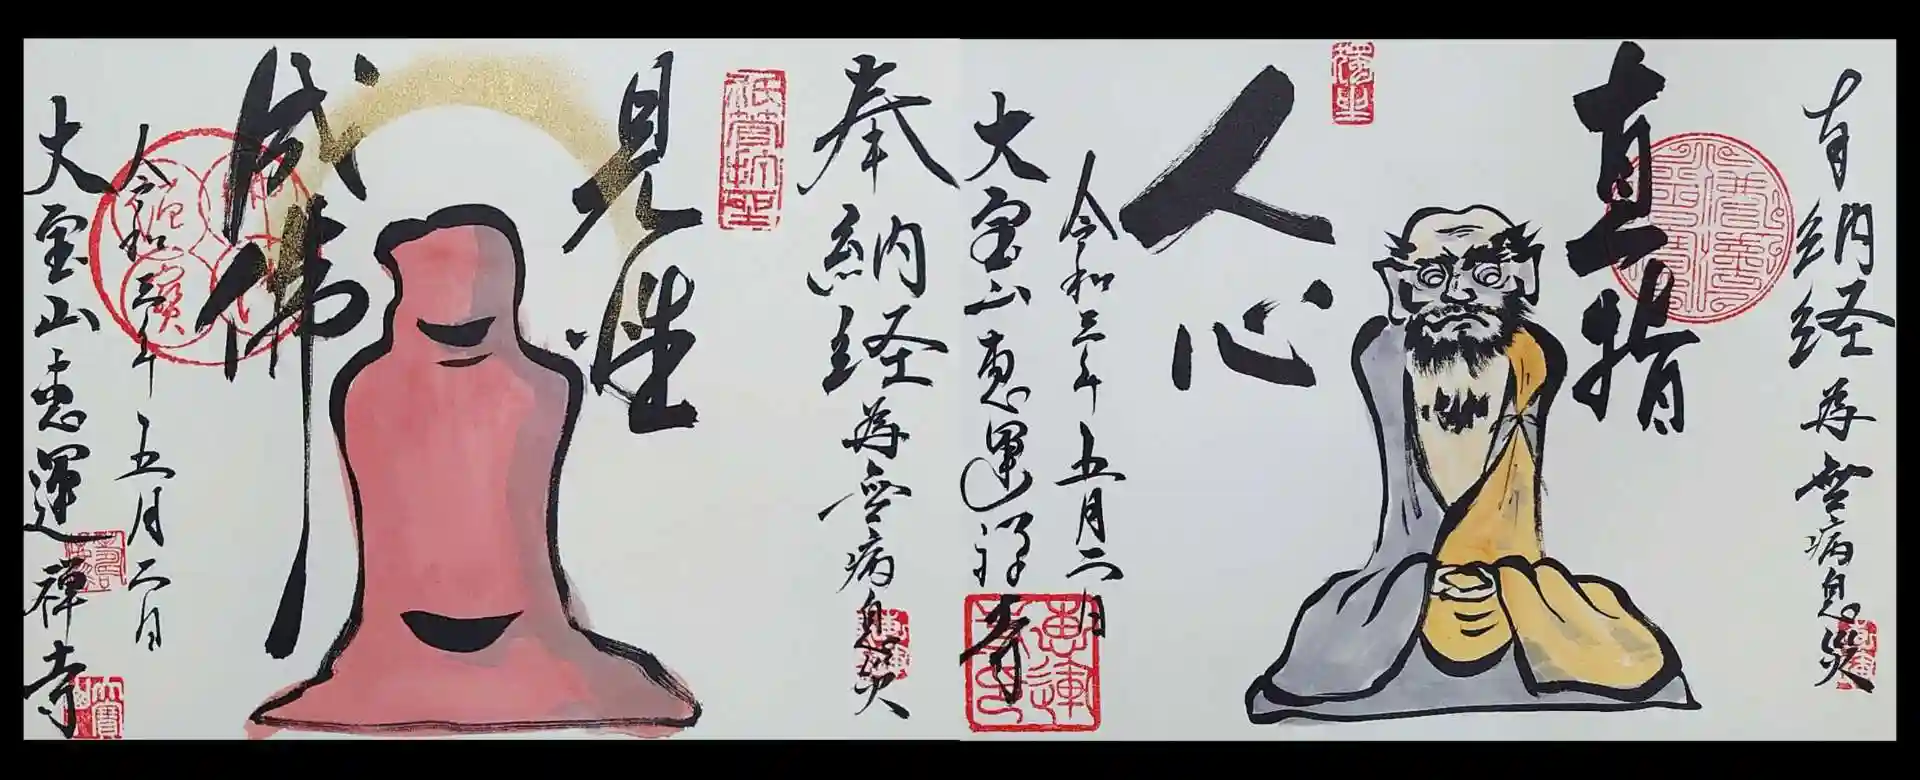 有納経為無病息災
直指
人心
令和三年五月二日
大宝山恵運禅寺
奉納経為無病息災
見性
成佛
令和三年五月二日
大宝山恵運禅寺